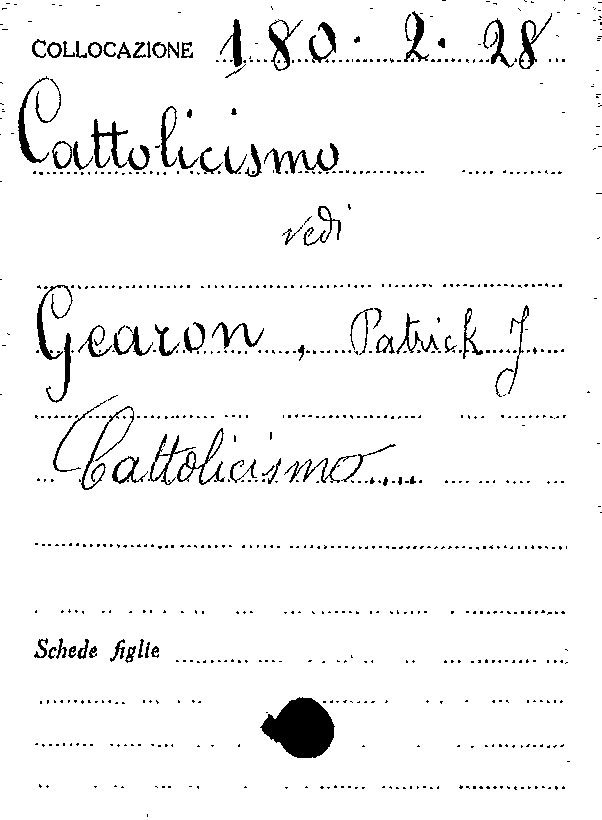 COLLOCAZIONE 180.2.28
Cattolicismo
vedi
Gearon, Patrick J.
Cattolicismo....
Schede figlie